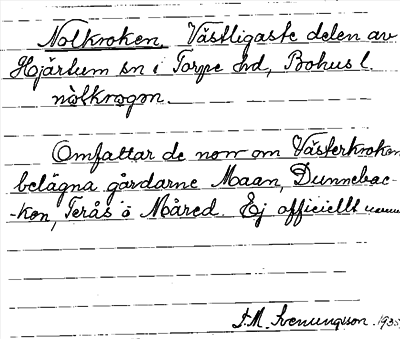 Nolkroken. Västligaste delen av
Hjärtum sn i Torpe hd, Bohus l.
nòlkrogon.
Omfattar de norr om Västerkroken
belägna gårdarne Maan, Dunnebac-
-ken, Terås o Måred. Ej officiellt namn
F.M. Svenungsson. 1935